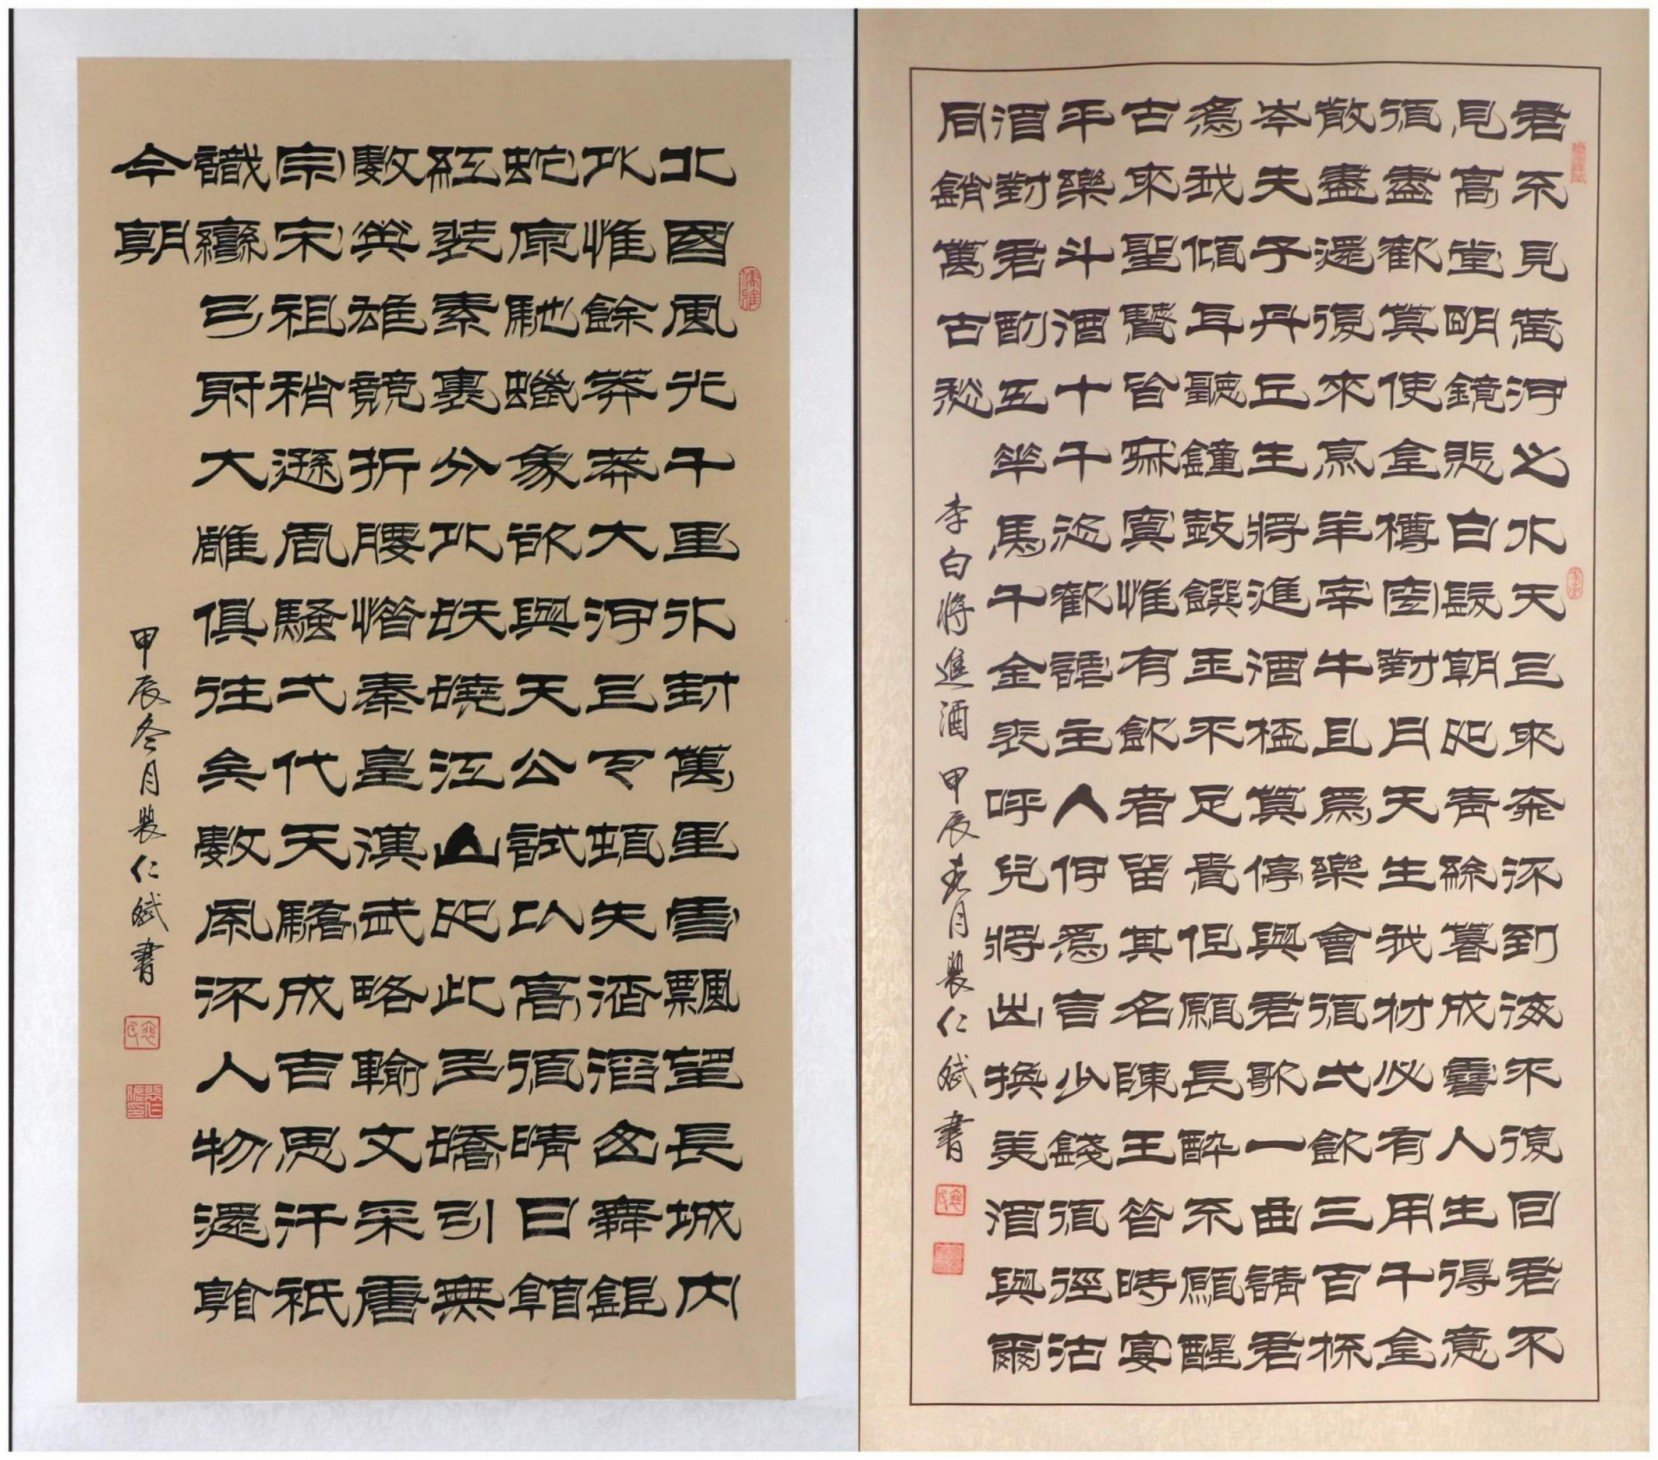 君不見黃河之水天上來奔流到海不復回君不
見高堂明鏡悲白髮朝如青絲暮成雪人生得意
須盡歡莫使金樽空對月天生我材必有用千金
散盡還復來烹羊宰牛且為樂會須弌飲三百杯
岑夫子丹丘生將進酒杯莫停與君歌一曲請君
為我傾耳聽鐘鼓饌玉不足貴但願長醉不願醒
古來聖賢皆寂寞惟有飲者留其名陳王昔時宴
平樂斗酒十千恣歡謔主人何為言少錢須徑沽
酒對君酌五花馬千金裘呼兒將出換美酒與爾
同銷萬古愁
李白將進酒 甲辰春月裴仁斌書
北國風光千里冰封萬里雪飄望長城內
外惟餘莽莽大河上下頓失滔滔山舞銀
蛇原馳蠟象欲與天公試比高須晴日看
紅裝素裹分外妖嬈江山如此多嬌引無
數英雄競折腰惜秦皇漢武略輸文采唐
宗宋祖稍遜風騷弌代天驕成吉思汗祗
識彎弓射大雕俱往矣數風流人物還看
今朝
甲辰冬月裴仁斌書
儒雅